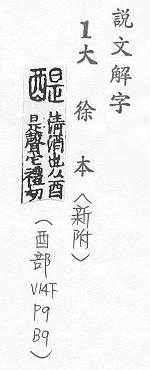 説文解字
1大徐本〈新附〉
醍 清酒也从酉
是聲它禮切
(酉部 V14下 P9 B9)